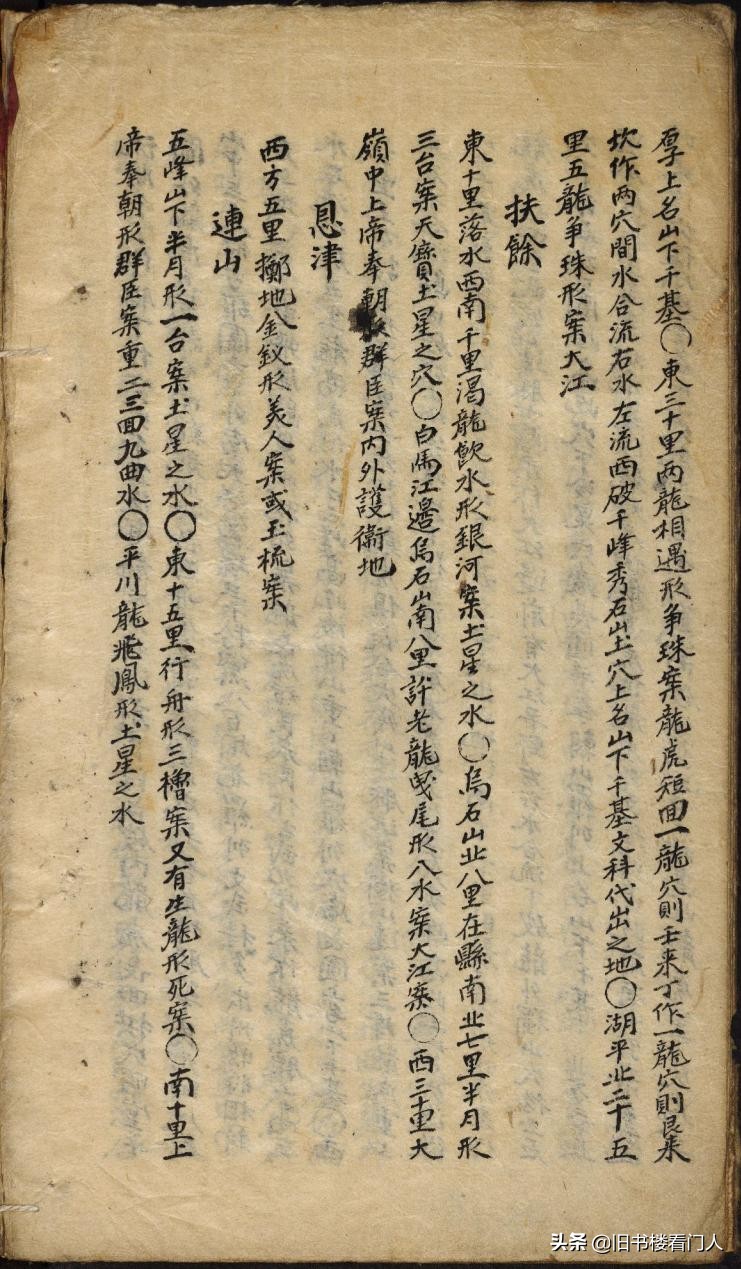 厚上名山下千基〇東三十里兩龍相遇形争珠案龍虎短回一龍穴則壬来丁作一龍穴則艮来
坎作两穴間水合流右水左流西破千峰秀石山土穴上名山下千基文科代出之地〇湖平北二十五
里五龍争珠形案大江
扶餘
東十里落水西南千里渴龍飮水形銀河案土星之水〇烏石山北八里在縣南北七里半月形
三台案天寶土星之穴〇白馬江邊烏石山南八里許老龍曳尾形八水案大江案〇西三十里大
嶺中上帝奉朝形群臣案内外護衛地
恩津
西方五里擲地金釵形美人案或玉梳案
連山
五峰山下半月形一台案土星之水〇東十五里行舟形三櫓案又有生龍形死案〇南十里上
帝奉朝形群臣案重二三回九曲水〇平川龍飛鳳形土星之水
头条 @旧书楼看门人